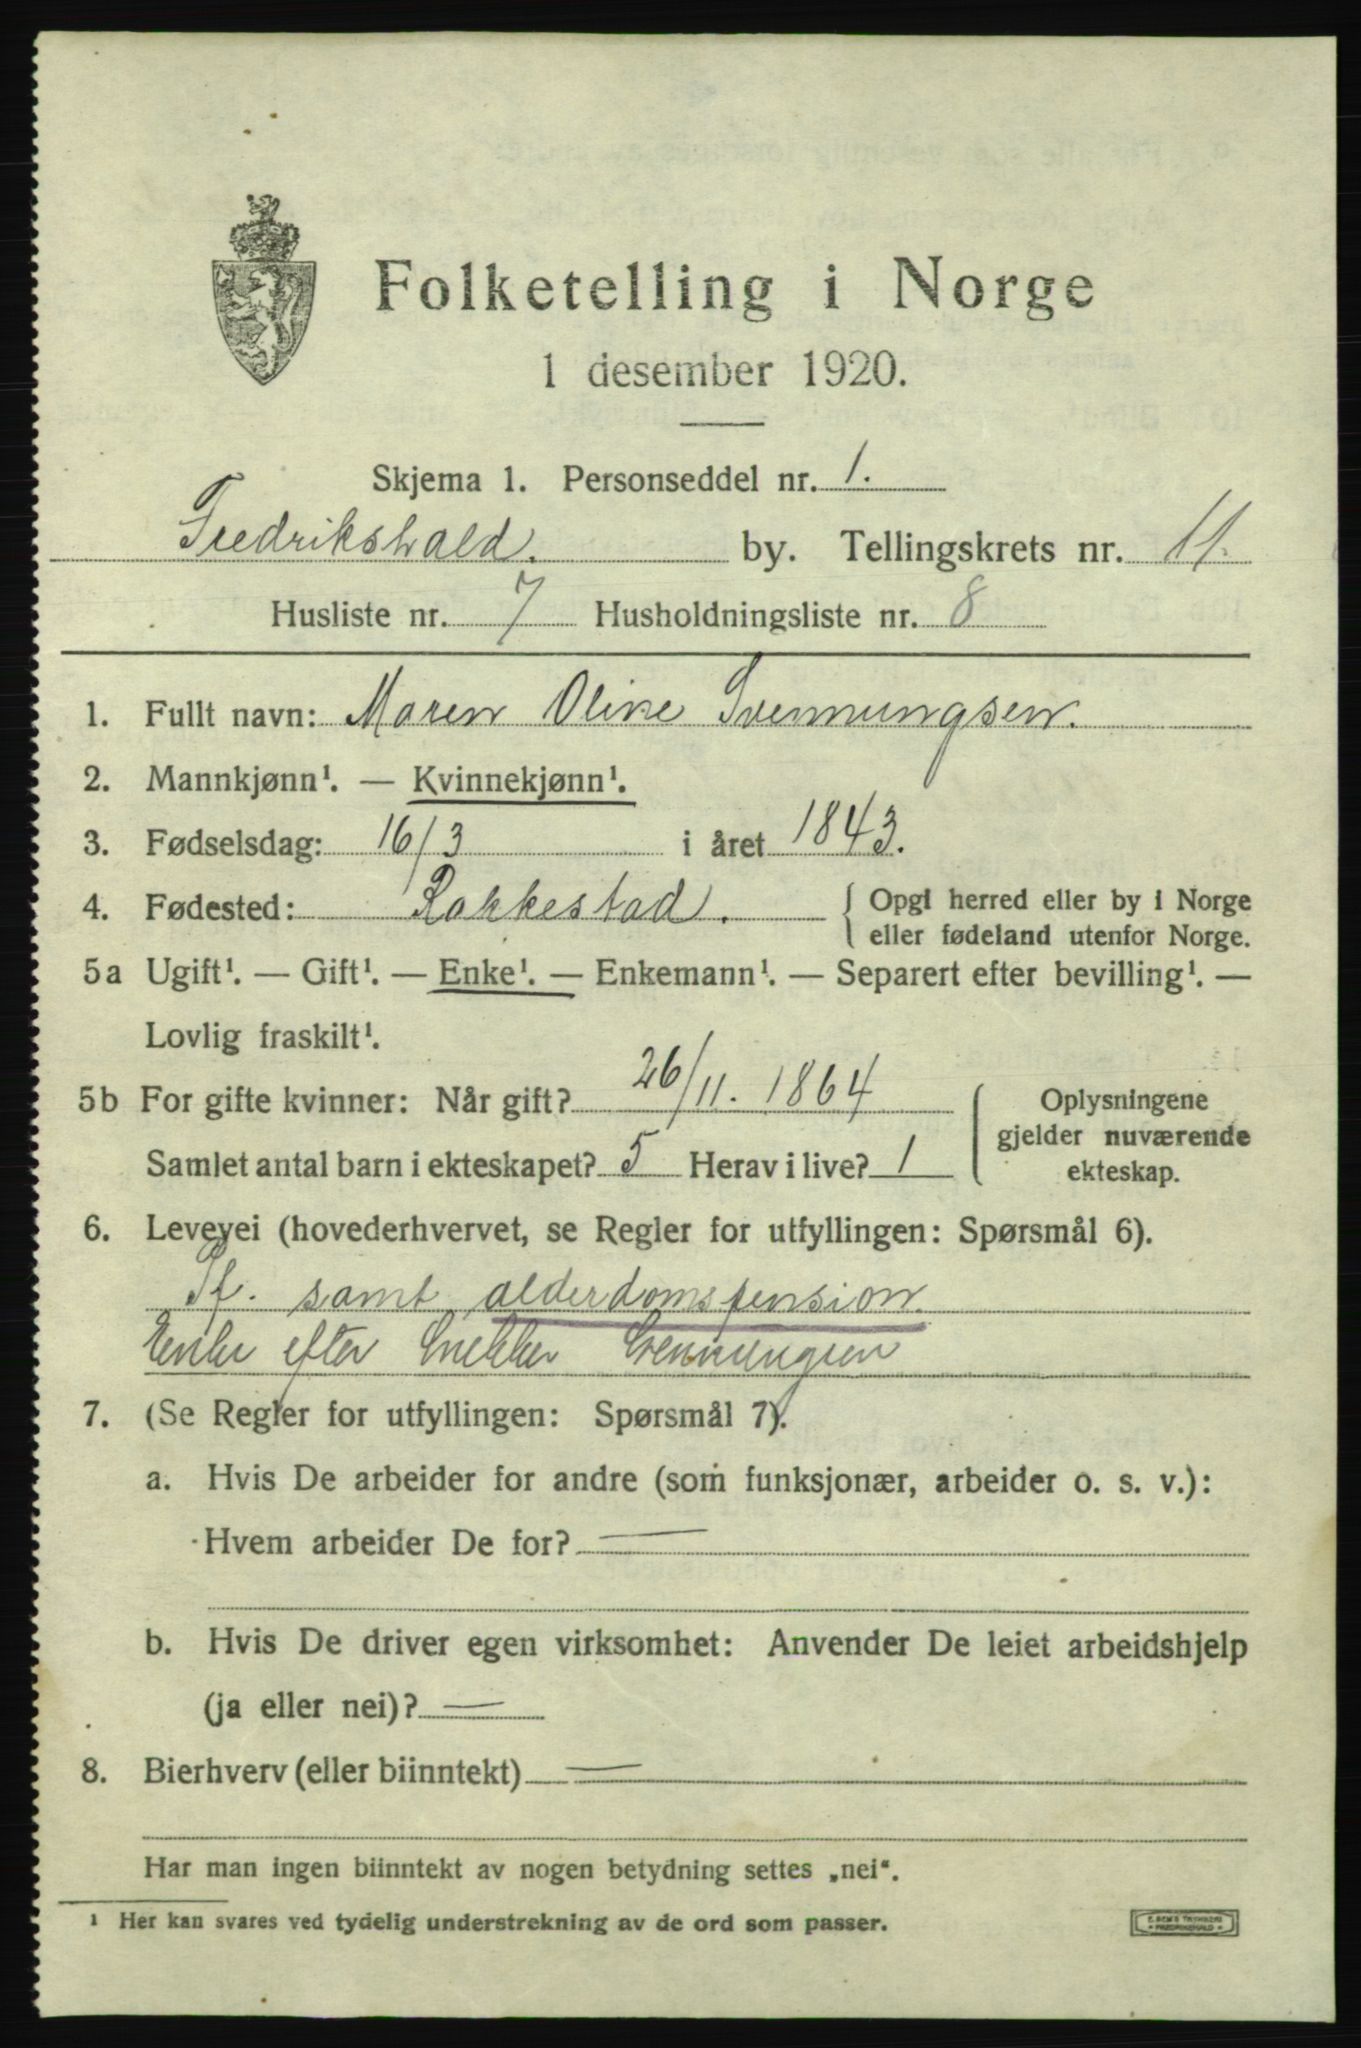 Folketelling i Norge
1 desember 1920.
Skjema 1. Personseddel nr. 1.
Fredrikshald. by. Tellingskrets nr. 11.
Husliste nr. 7 Husholdningsliste nr. 8
1. Fullt navn: Maren Oline Svenningsen.
2. Mannkjønn¹. — Kvinnekjønn¹.
3. Fødselsdag: 16/3 i året 1843.
4. Fødested: Rakkestad. { Opgi herred eller by i Norge
eller fødeland utenfor Norge.
5a Ugift¹. — Gift¹. — Enke¹. — Enkemann¹. — Separert efter bevilling¹. —
Lovlig fraskilt¹.
5b For gifte kvinner: Når gift? 26/11. 1864
Samlet antal barn i ekteskapet? 5 Herav i live? 1
{ Oplysningene
gjelder nuværende
ekteskap.
6. Levevei (hovederhvervet, se Regler for utfyllingen: Spørsmål 6).
Pf. samt alderdomspension.
Enke efter Snekker Svenningsen
7. (Se Regler for utfyllingen: Spørsmål 7).
a. Hvis De arbeider for andre (som funksjonær, arbeider o. s. v.):
Hvem arbeider De for? —
b. Hvis De driver egen virksomhet: Anvender De leiet arbeidshjelp
(ja eller nei)? —
8. Bierhverv (eller biinntekt) —
Har man ingen biinntekt av nogen betydning settes „nei“.
¹ Her kan svares ved tydelig understrekning av de ord som passer.